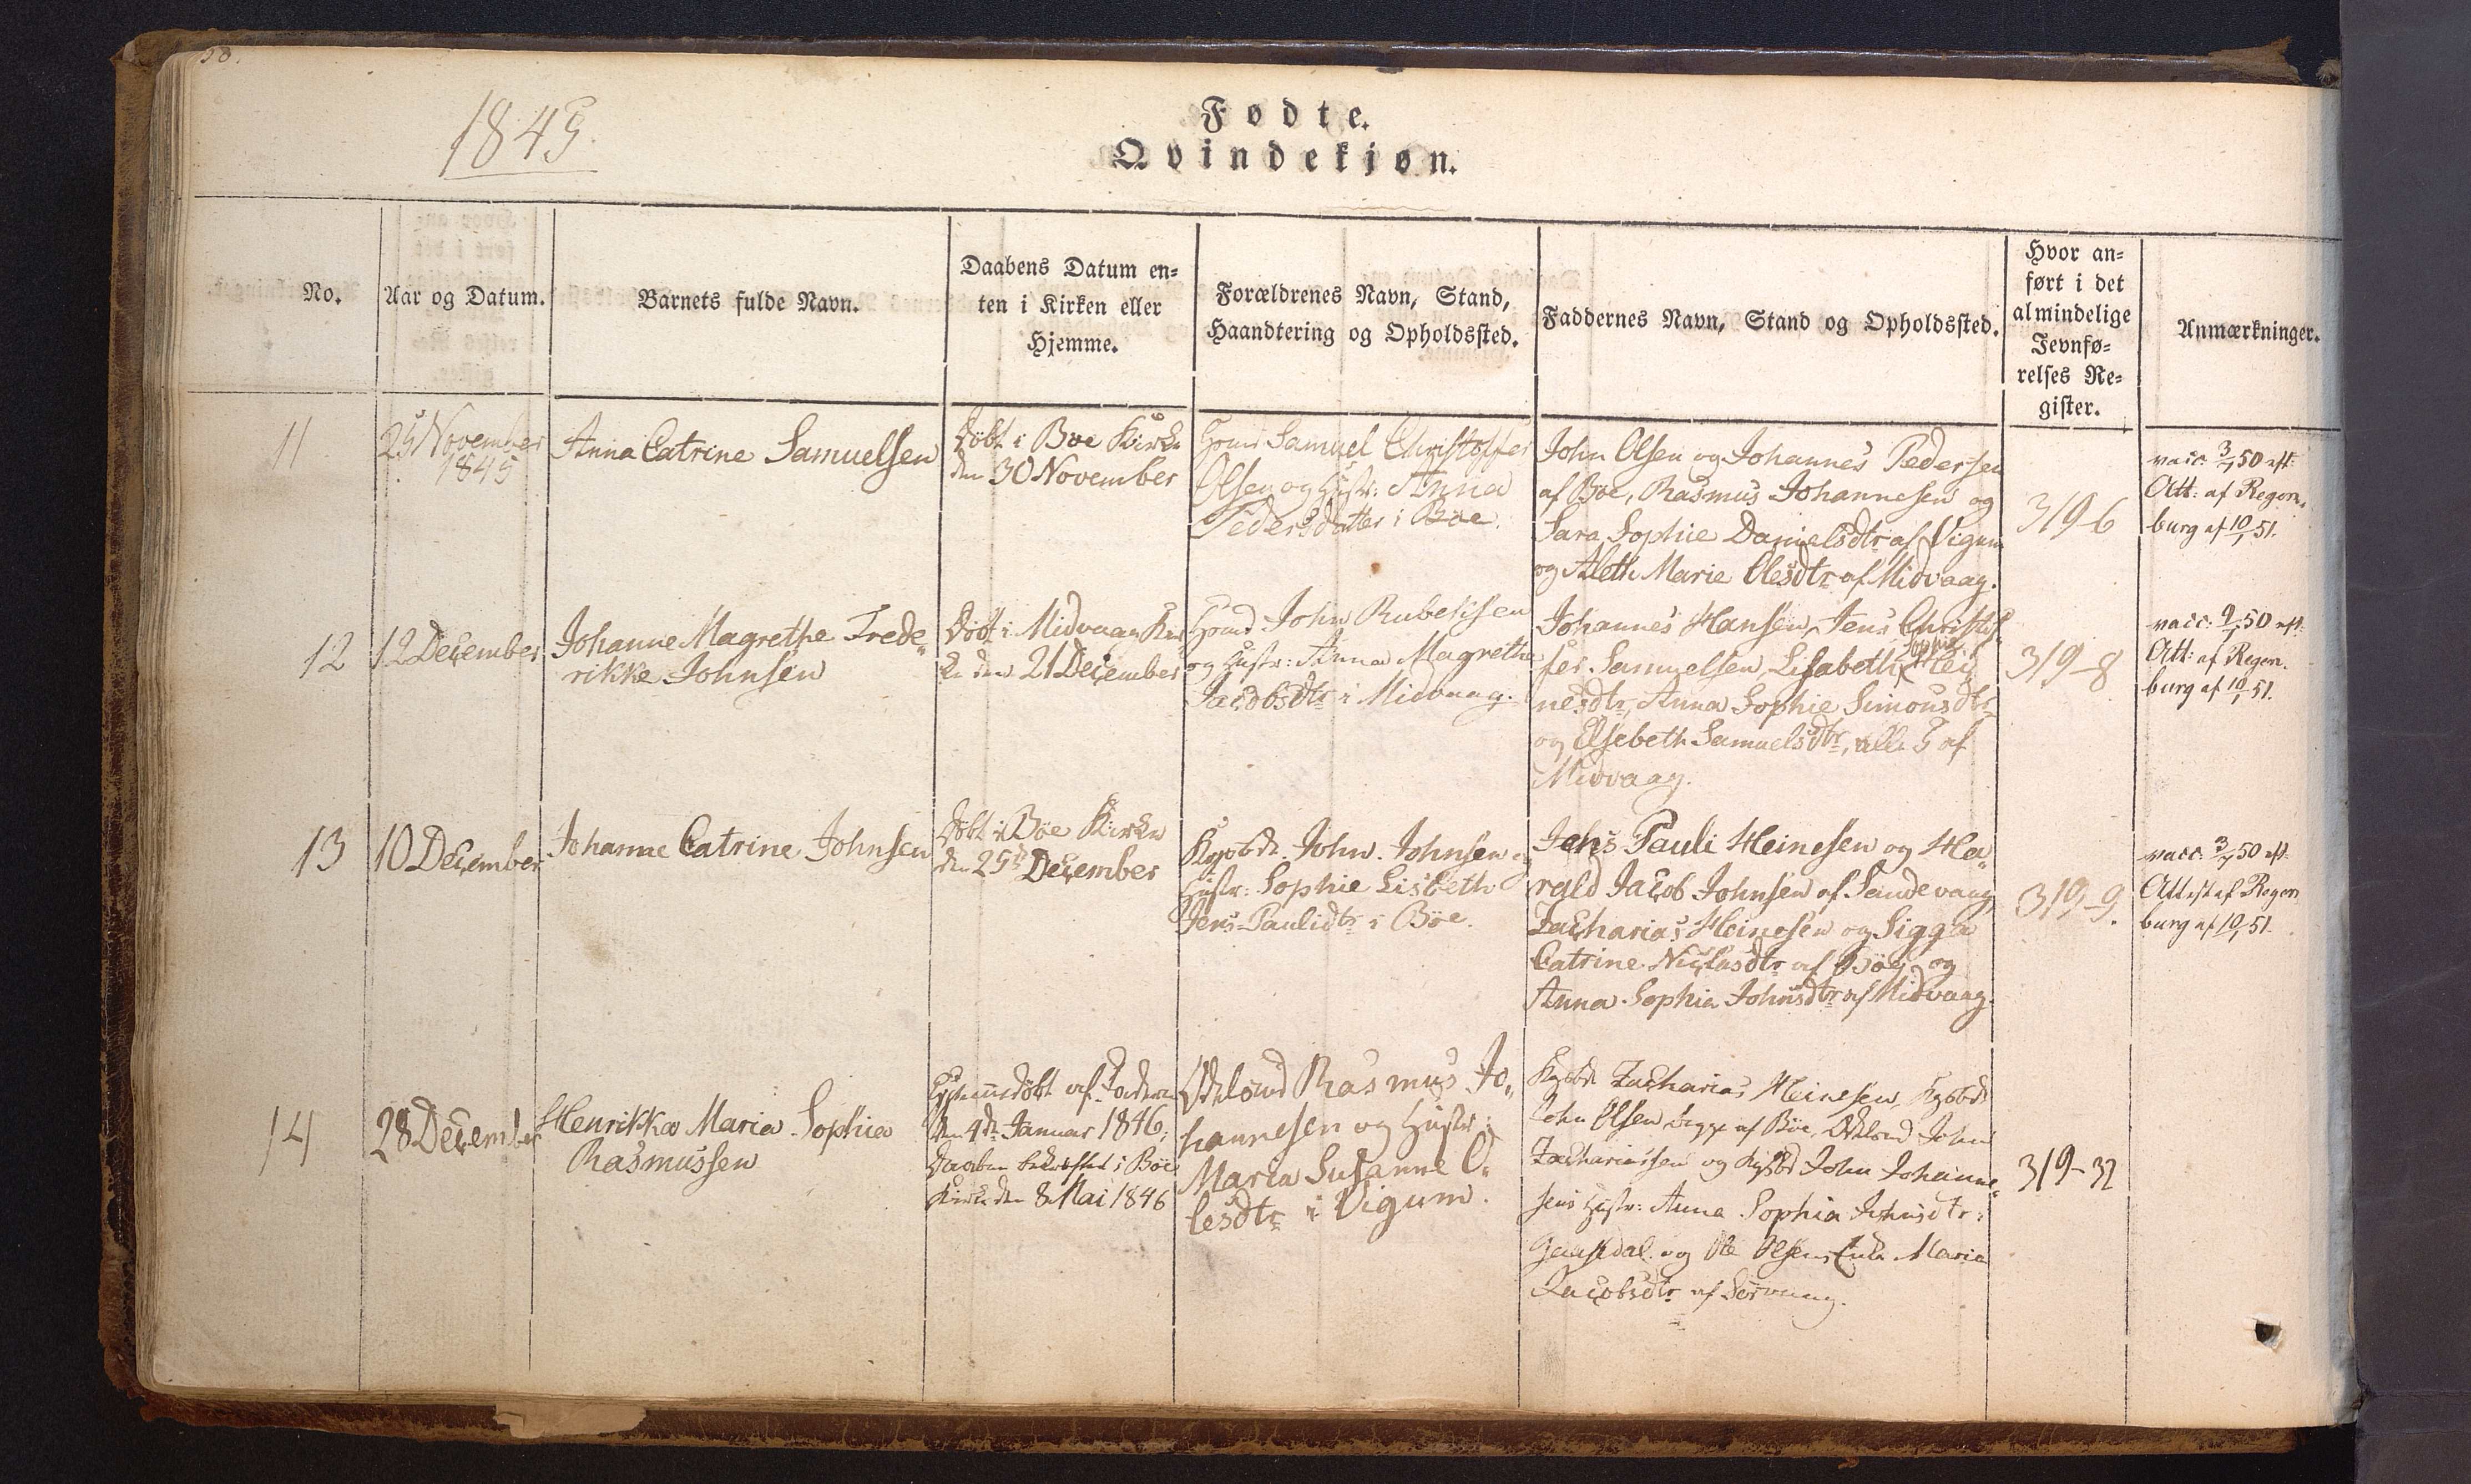 1845.
Fødte.
Qvindekjøn.
No.
Aar og Datum.
Barnets fulde Navn.
Daabens Datum en-
ten i Kirken eller
Hjemme.
Forældrenes Navn, Stand,
Haandtering og Opholdssted.
Faddernes Navn, Stand og Opholdssted.
Hvor an-
ført i det
almindelige
Jevnfø-
relses Re-
gister.
Anmærkninger.
11
25 November
1845
Anna Catrine Samuelsen
Döbt i Böe Kirke
den 30 November
Samuel Christoffer
Olsen og Hustr: Anna
Pedersdatter i Böe.
John Olsen og Johannes Pedersen
af Böe, Rasmus Johannesen og
Sara Sophie Danielsdtr af Vigum
og Aleth Marie Olesdtr af Midvaag.
319-6
vacc: 3/7 50 eft:
Att: af Regen,
burg af 10/1 51.
12
12 December
Johanne Magrethe Frede„
rikke Johnsen
Döbt i Midvaag Kir„
ke den 21 December
John
og Hustr: Anna Magrethe
Jacobsdtr i Midvaag.
Johannes Hansen, Jens Christof„
fer Samuelsen, Lisabeth Sophie Hei„
nesdtr, Anna Sophie Simonsdtr
og Elsebeth Samuelsdtr, alle 5 af
Midvaag.
319-8
vacc: 9/7 50 eft:
Att: af Regen.
burg af 10/1 51.
13
10 December
Johanne Catrine Johnsen
Döbt i Böe Kirke
den 25de December
John Johnsen og
Hustr: Sophie Lisbeth
Jens-Paulidtr i Böe.
Jens Pauli Heinesen og Ha„
rald Jacob Johnsen af Sandevaag,
Zacharias Heinesen og Sigga
Catrine Niclasdtr af Böe, og
Anna Sophia Johnsdtr af Midvaag.
319-9
vacc: 3/7 50 eft:
Attest af Regen
burg af 10/1 51.
14
28 December
Henrikka Maria Sophia
Rasmussen
Hjemmedöbt af Faderen
den 4de Januar 1846;
Daaben bekræftet i Böe
Kirke den 8 Mai 1846
Rasmus Jo„
hannesen og Hustr:
Maria Susanne O„
lesdtr i Vigum.
Zacharias Heinesen,
John Olsen, begge af Böe, John
Zachariassen og John Johanne„
sens Hustr: Anna Sophia Johnsdtr i
Gaasedal og Ole Olsens Enke Maria
Jacobsdtr af Sörvaag.
319-32